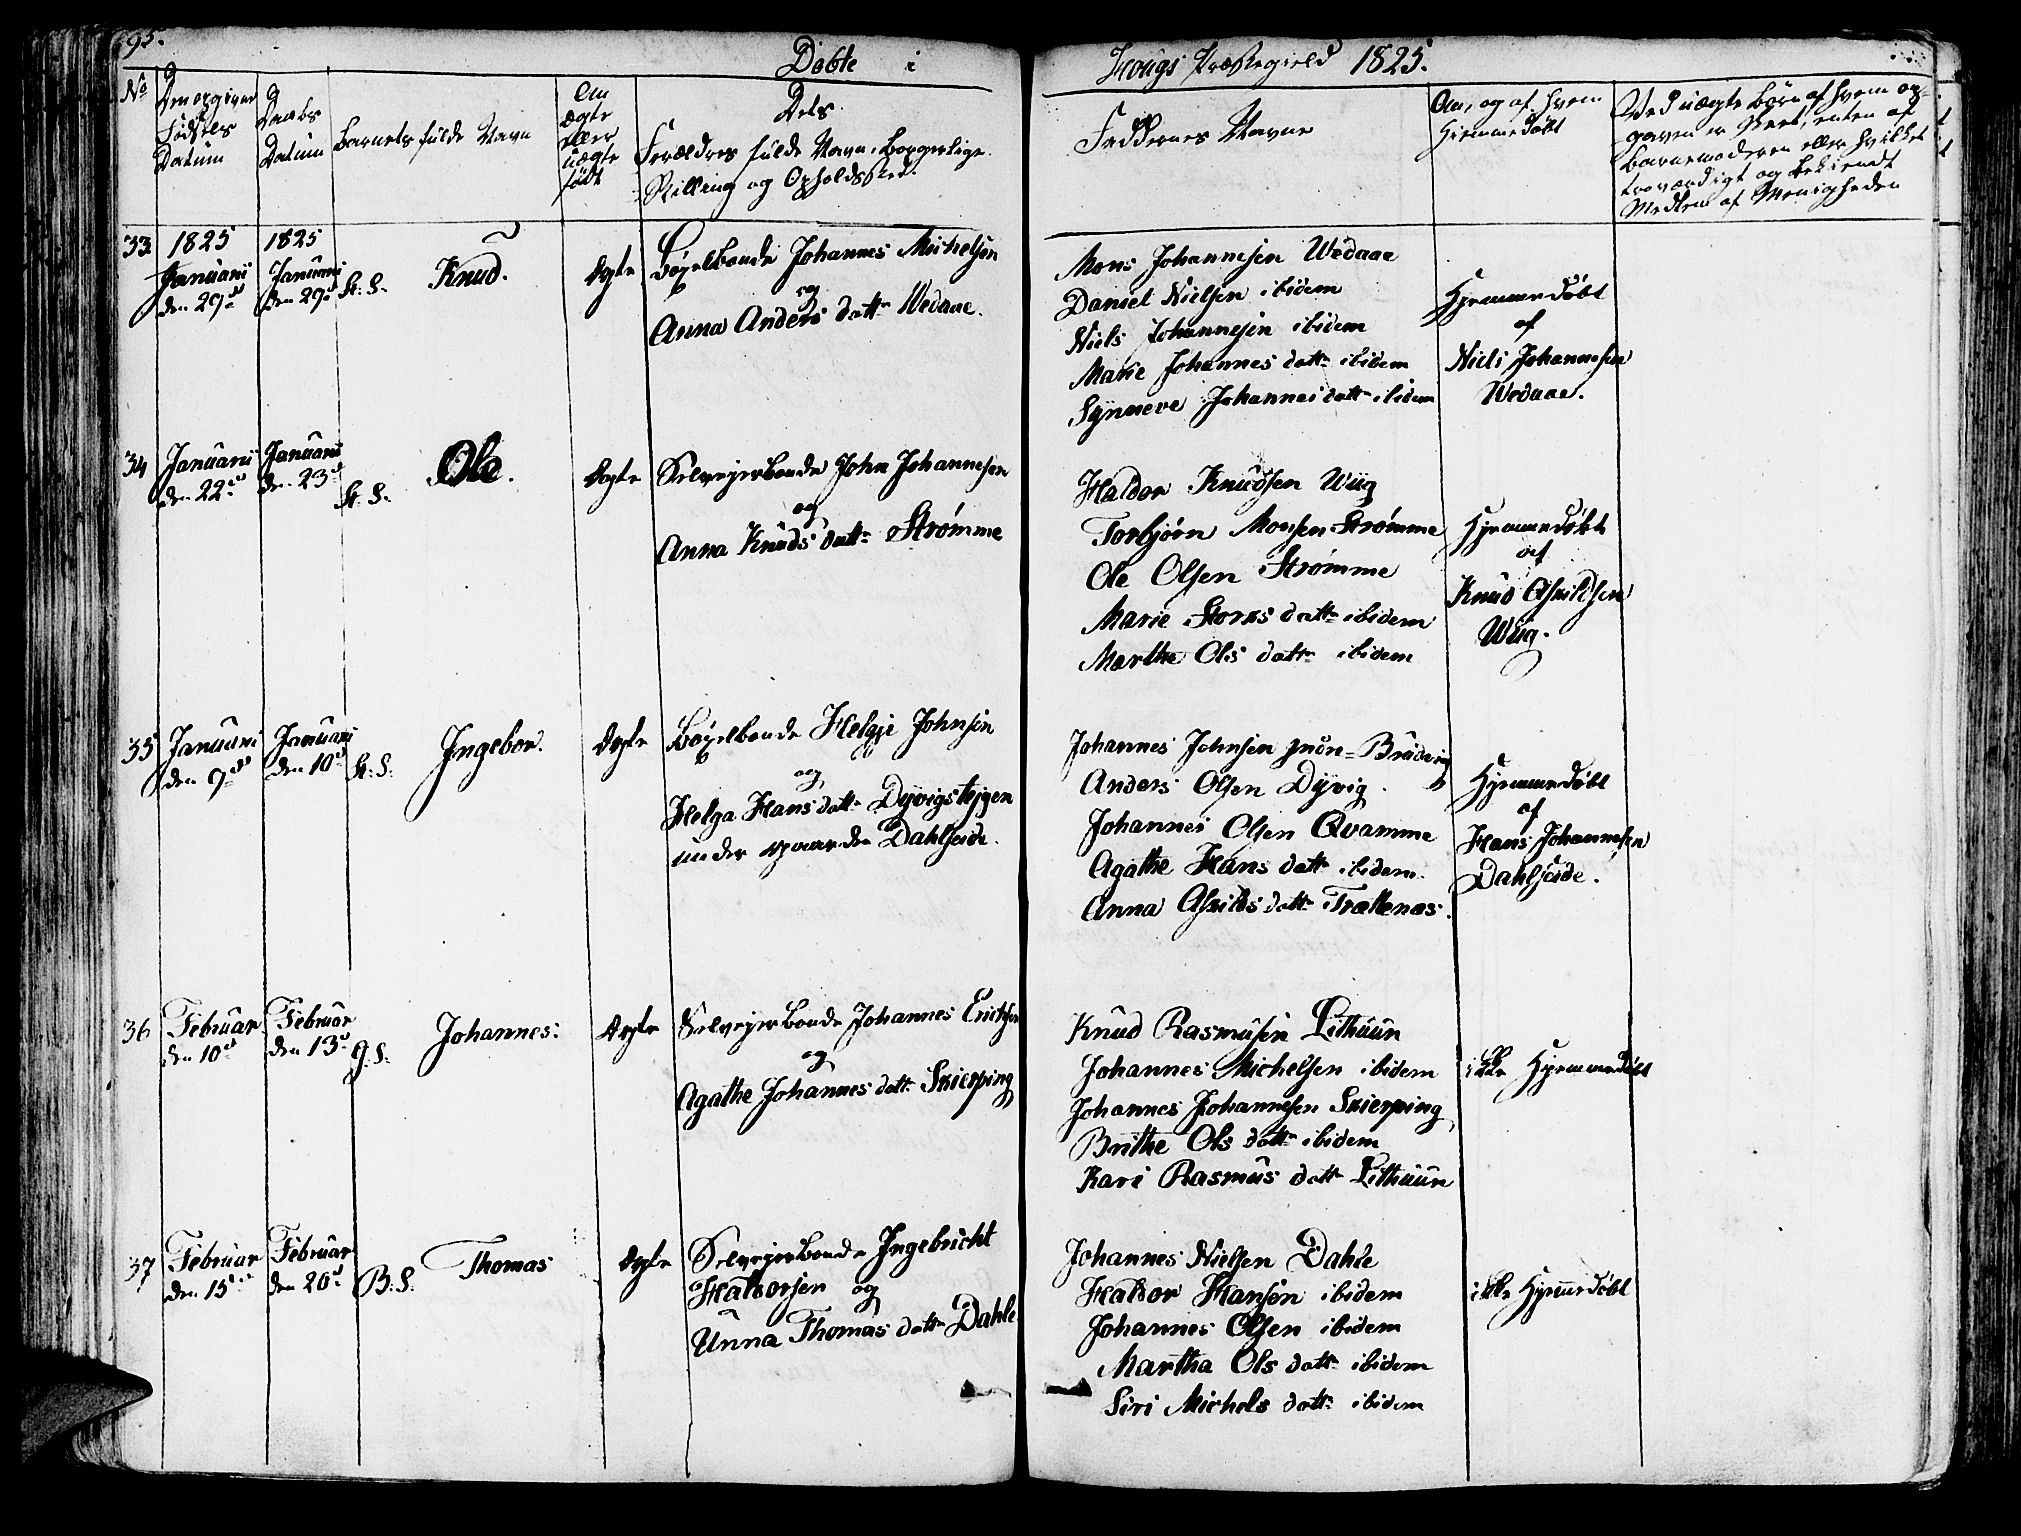 95.
Døbte i Hougs Præstegield 1825.
No
Den opgivne
Fødsels
Datum
Daabs
Datum
Barnets fulde Navn
Om
ægte
eller
uægte
født
Dets
Forældres fulde Navn, Borgerlige
Stilling og Opholdssted.
Faddernes Navne
Om, og af hvem
Hjemmedøbt
Ved uægte Børn af hvem op-
gaven er skeet, enten af
Barnemoderen eller hvilket
troværdigt og bekiendt
Medlem af Menigheden
33
1825
Januarii
den 29de
1825
Januarii
den 29de
H. S.
Knud.
Ægte
Bøxelbonde Johannes Michelsen
og
Anna Anders datter Wedaae.
Mons Johannesen Wedaae
Daniel Nielsen ibidem
Niels Johannesen ibidem
Marie Johannes datter ibidem
Synneve Johannes datter ibidem
Hjemmedøbt
af
Niels Johannesen
Wedaae.
34
Januarii
den 22de
Januarii
den 23de
H. S.
Ole.
Ægte
Selveyerbonde John Johannesen
og
Anna Knuds datter Strømme
Haldor Knudsen Wiig
Torbjørn Monsen Strømme
Ole Olsen Strømme
Marie Storks datter ibidem
Marthe Ols datter ibidem
Hjemmedøbt
af
Knud Askildsen
Wiig.
35
Januarii
den 9de
Januarii
den 10de
H. S.
Ingebor.
Ægte
Bøxelbonde Helgje Johnsen
og
Helga Hans datter Dyvigstejgen
under gaarden Dahlseide.
Johannes Johnsen Brudvig
Anders Olsen Dyvig
Johannes Olsen Qvamme
Agathe Hans datter ibidem
Anna Askilds datter Trættenæs.
Hjemmedøbt
af
Hans Johannesen
Dahlseide.
36
Februar
den 10de
Februar
den 13de
G. S.
Johannes.
Ægte
Selveyerbonde Johannes Erichsen
og
Agathe Johannes datter Skierping
Knud Rasmusen Lithuun
Johannes Michelsen ibidem
Johannes Johannesen Skierping
Brithe Ols datter ibidem
Kari Rasmus datter Lithuun
ikke Hjemmedøbt
37
Februar
den 15de
Februar
den 20de
B. S.
Thomas
Ægte
Selveyerbonde Ingebricht
Haldorsen og
Unna Thomas datter Dahle
Johannes Nielsen Dahle
Haldor Hansen ibidem
Johannes Olsen ibidem
Martha Ols datter ibidem
Siri Michels datter ibidem
ikke Hjemmedøbt